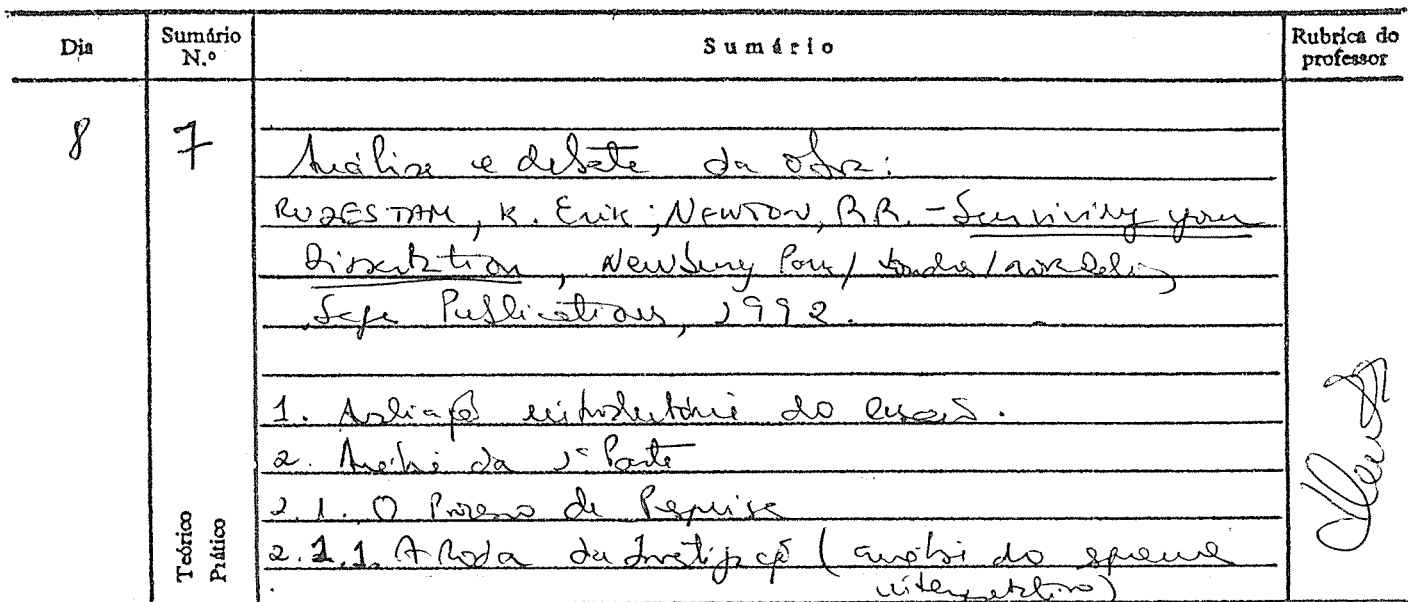 Dia Sumário N.º Sumário Rubrica do professor
8 7 Análise e debate da obra:
RUDESTAM, K. Erik; NEWTON, R.R. - Surviving your
Dissertation, Newbury Park / London / New Delhi
Sage Publications, 1992.
1. Avaliação introdutória do ensaio.
2. Análise da 1ª Parte
2.1. O Processo de Pesquisa
2.1.1. A Roda da Investigação (análise do esquema
interpretativo)
Teórico
Prático